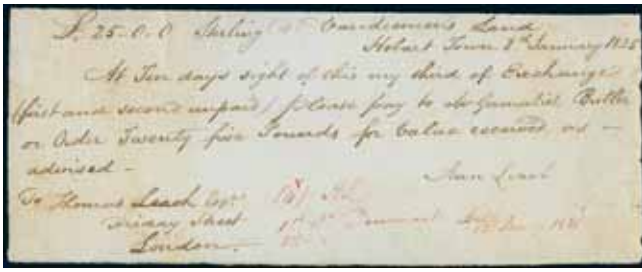 £. 25-0.0 Sterling Vandiemen's Land
Hobart Town 8th January 1825
At Ten days sight of this my third of Exchange
(first and second unpaid) please pay to Gamaliel Butler
or Order Twenty five Pounds for Value received as
advised -
Ann Leach
To Thomas Leach Esqr.
Friday Street
London